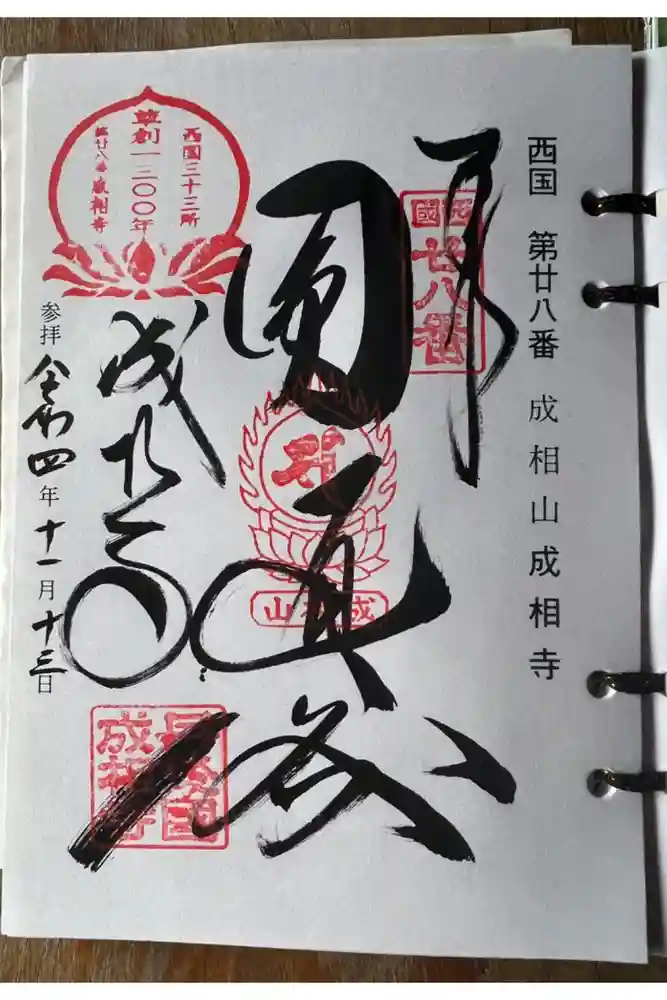 西国　第廿八番　成相山成相寺
西國
廿八番
圓
成相山
西国三十三所
草創一三〇〇年
第廿八番 成相寺
成相寺
参拝 令和四年十一月十三日
成相寺